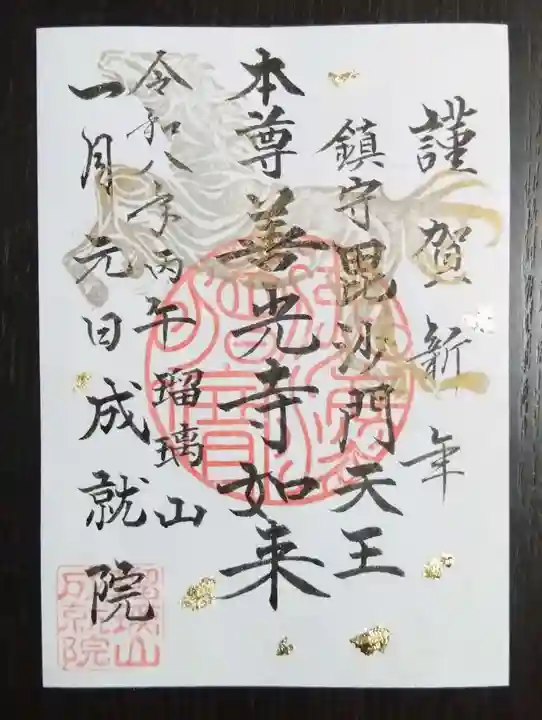 謹賀新年
鎮守毘沙門天王
本尊善光寺如来
令和八年丙午 瑠璃山
一月元日 成就院
瑠璃山
成就院